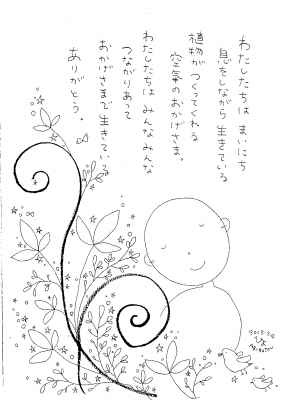 わたしたちは まいにち
息をしながら 生きている
植物が つくってくれる
空気のおかげさま。
わたしたちは みんなみんな
つながりあって
おかげさまで生きている
ありがとう。